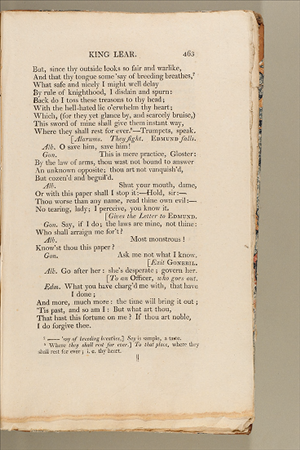 KING LEAR. 463
But, since thy outside looks so fair and warlike,
And that thy tongue some 'say of breeding breathes,⁷
What safe and nicely I might well delay
By rule of knighthood, I disdain and spurn:
Back do I toss these treasons to thy head;
With the hell-hated lie o'erwhelm thy heart;
Which, (for they yet glance by, and scarcely bruise,)
This sword of mine shall give them instant way,
Where they shall rest for ever.⁸—Trumpets, speak.
[Alarums. They fight. EDMUND falls.
Alb. O save him, save him!
Gon. This is mere practice, Gloster:
By the law of arms, thou wast not bound to answer
An unknown opposite; thou art not vanquish'd,
But cozen'd and beguil'd.
Alb. Shut your mouth, dame,
Or with this paper shall I stop it:—Hold, sir:—
Thou worse than any name, read thine own evil:—
No tearing, lady; I perceive, you know it.
[Gives the Letter to EDMUND.
Gon. Say, if I do; the laws are mine, not thine:
Who shall arraign me for't?
Alb. Most monstrous!
Know'st thou this paper?
Gon. Ask me not what I know.
[Exit GONERIL.
Alb. Go after her: she's desperate; govern her.
[To an Officer, who goes out.
Edm. What you have charg'd me with, that have
I done;
And more, much more: the time will bring it out;
'Tis past, and so am I: But what art thou,
That hast this fortune on me? If thou art noble,
I do forgive thee.
⁷ —— 'say of breeding breathes,] Say is sample, a taste.
⁸ Where they shall rest for ever.] To that place, where they
shall rest for ever; i. e. thy heart.